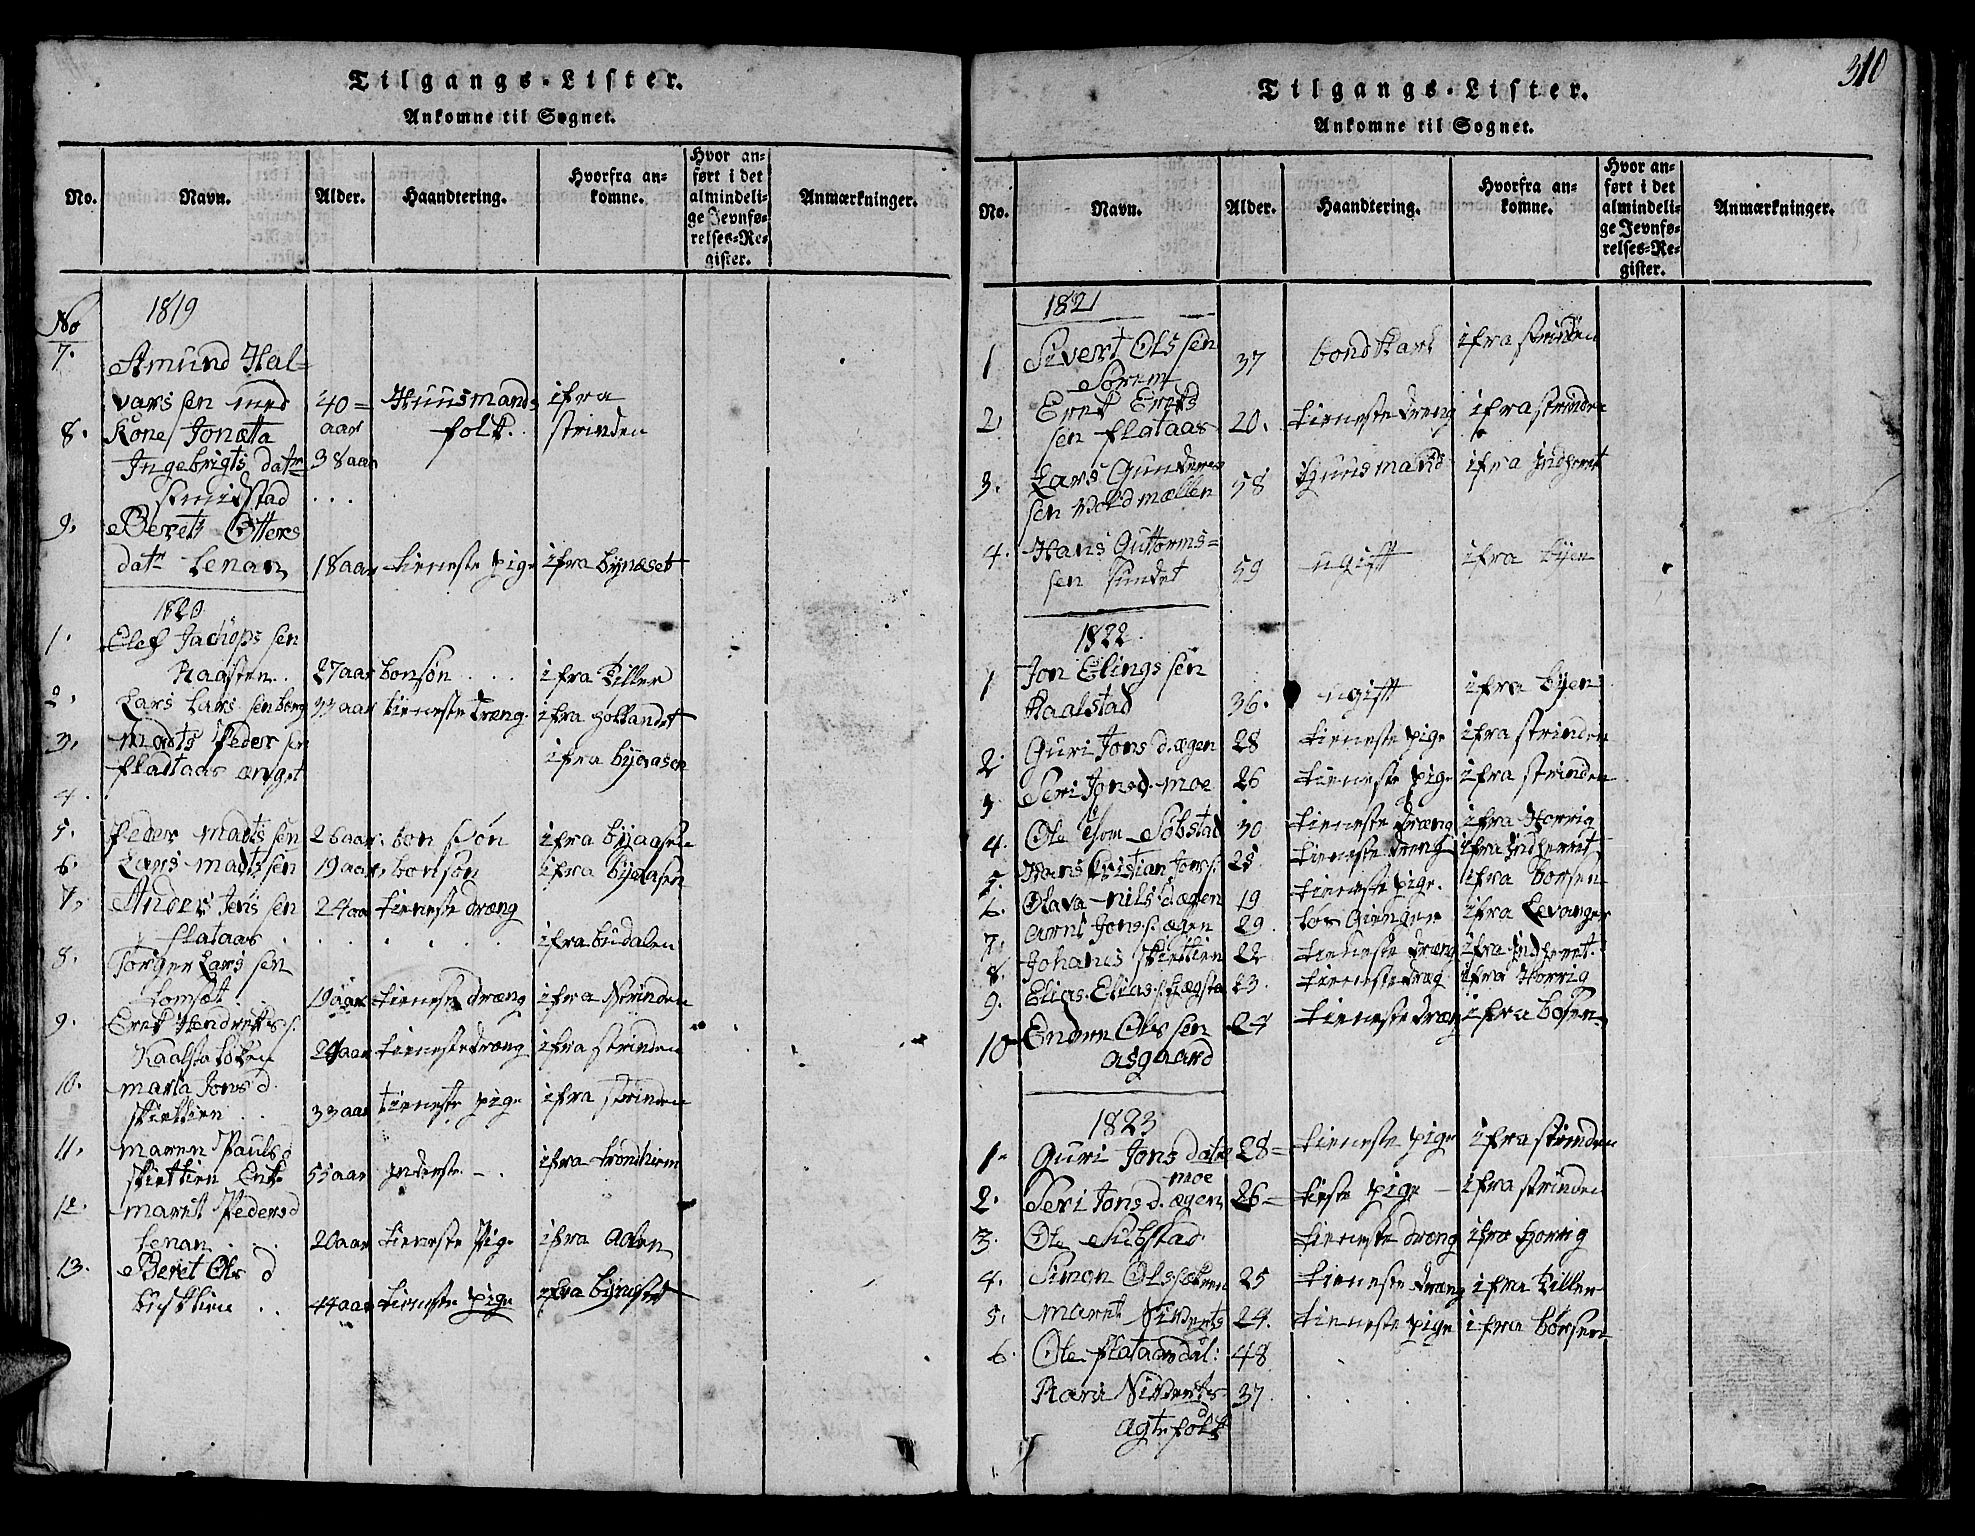 Tilgangs-Lister.
Ankomne til Sognet.
No.
Navn.
Alder.
Haandtering.
Hvorfra an-
komne.
Hvor an-
ført i det
almindeli-
ge Jevnfø-
relses-Re-
gister.
Anmærkninger.
No 1819
7. Amund Hal-
varssen med 40= Huusmands ifra
8. Kone Jonetta aar folk. strinden
Ingebrigts datr 38 aar
Smidstad . . .
9. Beret Otters
datr Lenan 18 aar tieneste pige ifra bynæset
1820
1. Elef Jachops sen
Raasten.. 27 aar bonsøn . . . ifra Tiller
2. Lars Lars sen berg 33 aar tieneste dræng. ifra
3. Madts Peder sen
flataas ænget ifra byaasen
4.
5. Peder Madts sen 26 aar. bon søn ifra byaasen
6. Lars Madts sen 19 aar. bonsøn ifra byaasen
7. Anders Jens sen 24 aar tieneste dræng
flataas . . . . . ifra budalen
8. Torger Lars sen
19 aar tieneste dræng ifra Strinden
9. Eret Hendrek s.
24 aar tieneste dræng ifra strinden
10. marta Jons d.
skiettien . . 33 aar tieneste pige ifra strinden
11. maren Pauls d
skiettien Enke 55 aar inderste - . ifra trondhiem
12. marit Peders d
Lenan . . . 20 aar tieneste Pige ifra Aalen
13. Beret Ols d
. . 44 aar tieneste pige ifra bynæset
310
Tilgangs-Lister.
Ankomne til Sognet.
No.
Navn.
Alder.
Haandtering.
Hvorfra an-
komne.
Hvor an-
ført i det
almindeli-
ge Jevnfø-
relses-Re-
gister.
Anmærkninger.
1821
1 Sivert Ols sen 37 bondkarl ifra strinden
Sørem
2 Eret Erets
sen flataas 20. tieneste dreng ifra strinden
3. Lars Gunders 58 Huusmand ifra Indherret
sen Voldmællen
4. Hans Guttorms=
sen sundet 59 ugift ifra byen
1822.
1 Jon Elings sen
Kaalstad 36. ugift ifra byen
2. Guri Jons d. ægen 28 tieneste pige ifra strinden
3 Seri Jons d. moe 26 tieneste pige ifra strinden
4. Ole Søbstad 30 tieneste dræng ifra Horrig
5. Hans Kristian Jons s. 28 tieneste dreng ifra Indherret
6. Olava nils d. ægen 19 tieneste pige. ifra børsen
7. arnt Jons s. ægen 29. ifra Levanger
8. Johanes skiettien 22 tieneste dræng ifra Indherret.
9. Elias Elias s. 23. tieneste dræg ifra Horrig
10 Endre Ols sen 24 tieneste dræng ifra bøsen
asgaard
1823
1. Guri Jons datr 28= tieneste pige ifra strinden
moe
2. Seri Jons d. ægen 26= tieste pige - ifra strinden
3. Ole Substad tieneste dræng ifra Horrig
4. Simon Ols 25 tieneste dræng ifra Tiller
5. Marit Siverts 24. tieneste pige ifra børsen
6. Ole flataas dal: 48
Kari Siverts- 37 .
d
agtefolk